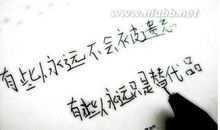 www.niubb.net
有些人永远不会被遗忘
有些人永远只是替代品